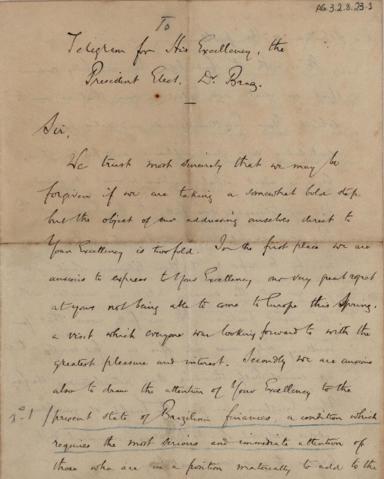 AG.3.2.8.23-1
To
Telegram for His Excellency, the
President Elect. Dr. Braz.
Sir,
We trust most sincerely that we may be
forgiven if we are taking a somewhat bold step
but the object of our addressing ourselves direct to
Your Excellency is twofold. In the first place we are
anxious to express to Your Excellency our very great regret
at your not being able to come to Europe this Spring,
a visit which everyone was looking forward to with the
greatest pleasure and interest. Secondly we are anxious
also to draw the attention of Your Excellency to the
present state of Brazilian finances, a condition which
requires the most serious and immediate attention of
those who are in a position materially to add to the